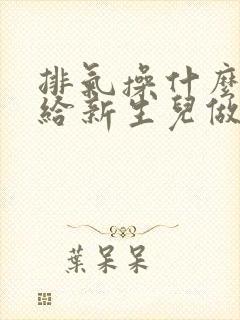 排氣操什麼
給新生兒做
葉呆呆